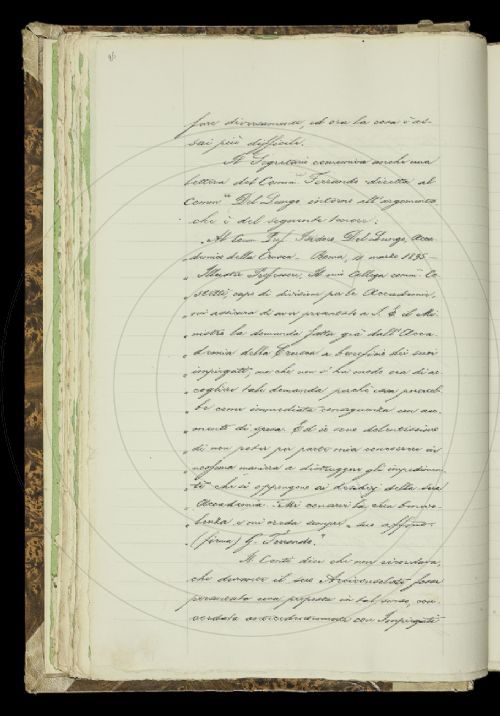 fare diversamente, ed ora la cosa è as-
sai più difficile.
Il Segretario comunica anche una
lettera del Comm. Ferrando diretta al
Comm. Del Lungo intorno all'argomento
che è del seguente tenore:
„Al Comm. Prof. Isidoro Del Lungo, Acca-
„demia della Crusca - Roma, 11 marzo 1895 -
„Illustre Professore, Il mio Collega comm. Co
„stetti, capo di divisione per le Accademie,
„mi assicura di aver presentato a S. E. il Mi-
„nistro la domanda fatta già dall'Acca-
„demia della Crusca a beneficio dei suoi
„impiegati, ma che non v'ha modo ora di ac-
„cogliere tale domanda perchè essa porereb-
„be come immediata conseguenza un au-
„mento di spesa. Ed io sono dolentissimo
„di non poter per parte mia concorrere in
„nessuna maniera a distruggere gli impedimen-
„ti che si oppongono ai desiderj della sua
„Accademia. Mi conservi la sua benevo-
„lenza e mi creda sempre suo affmo.
„(firma) G. Ferrando."
Il Conti dice che non ricordava,
che durante il suo Arciconsolato fosse
presentata una proposta in tal senso, con-
cordata antecedentemente con Impiegati